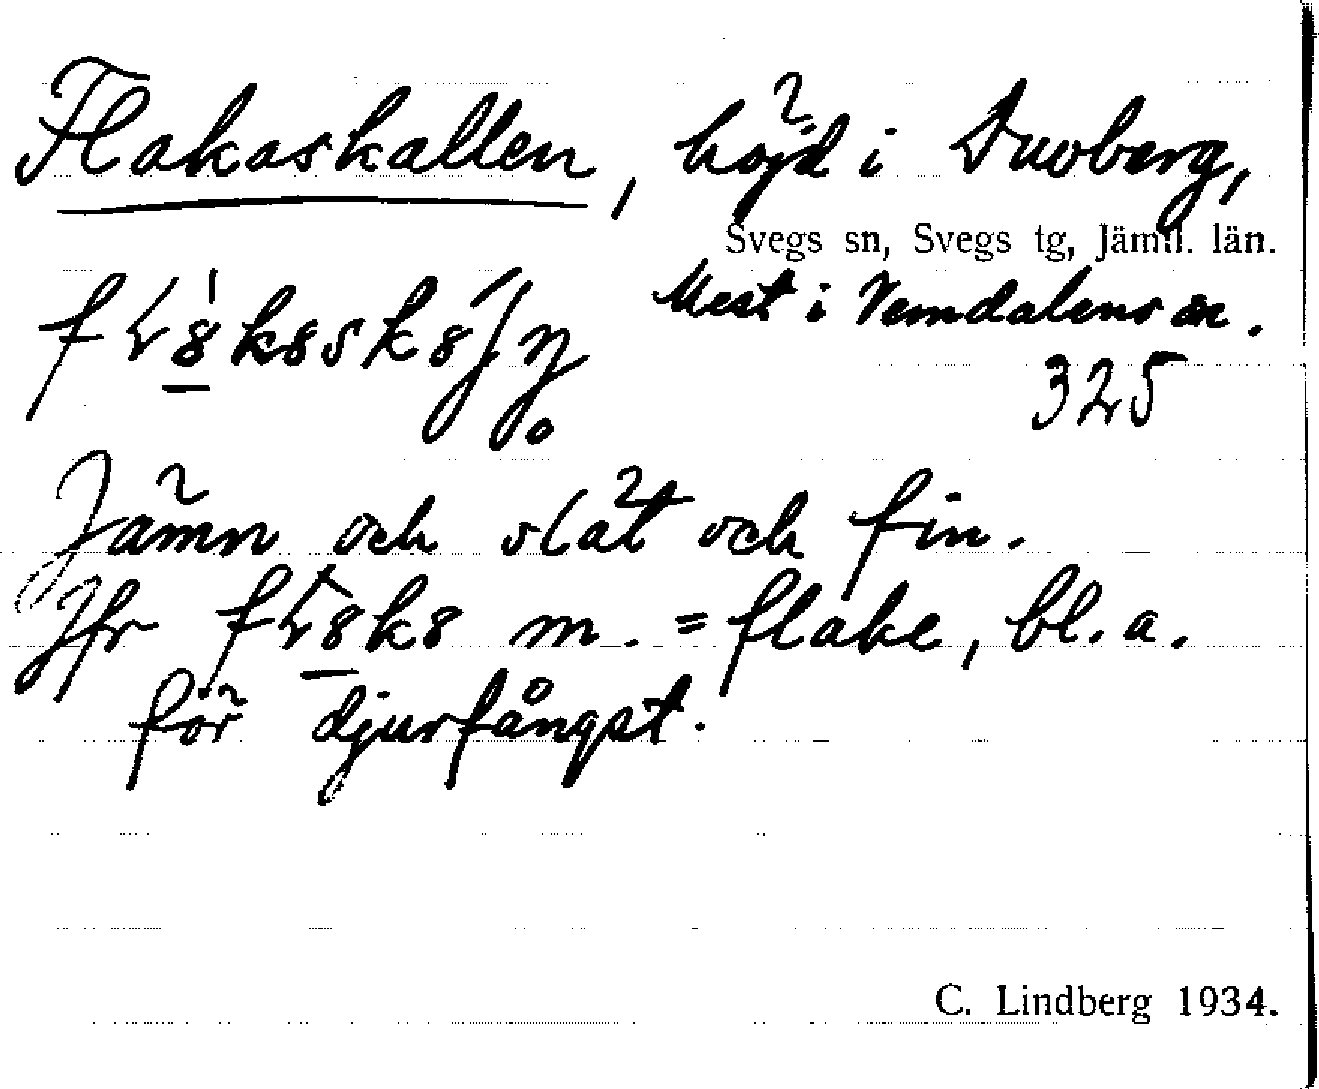 Flakaskallen, höjd i Duvberg,
Svegs sn, Svegs tg, Jämtl. län.
Mest i Vemdalens sn.
325
Jämn och slät och fin.
Jfr m. = flake, bl. a.
för djurfångst.
C. Lindberg 1934.